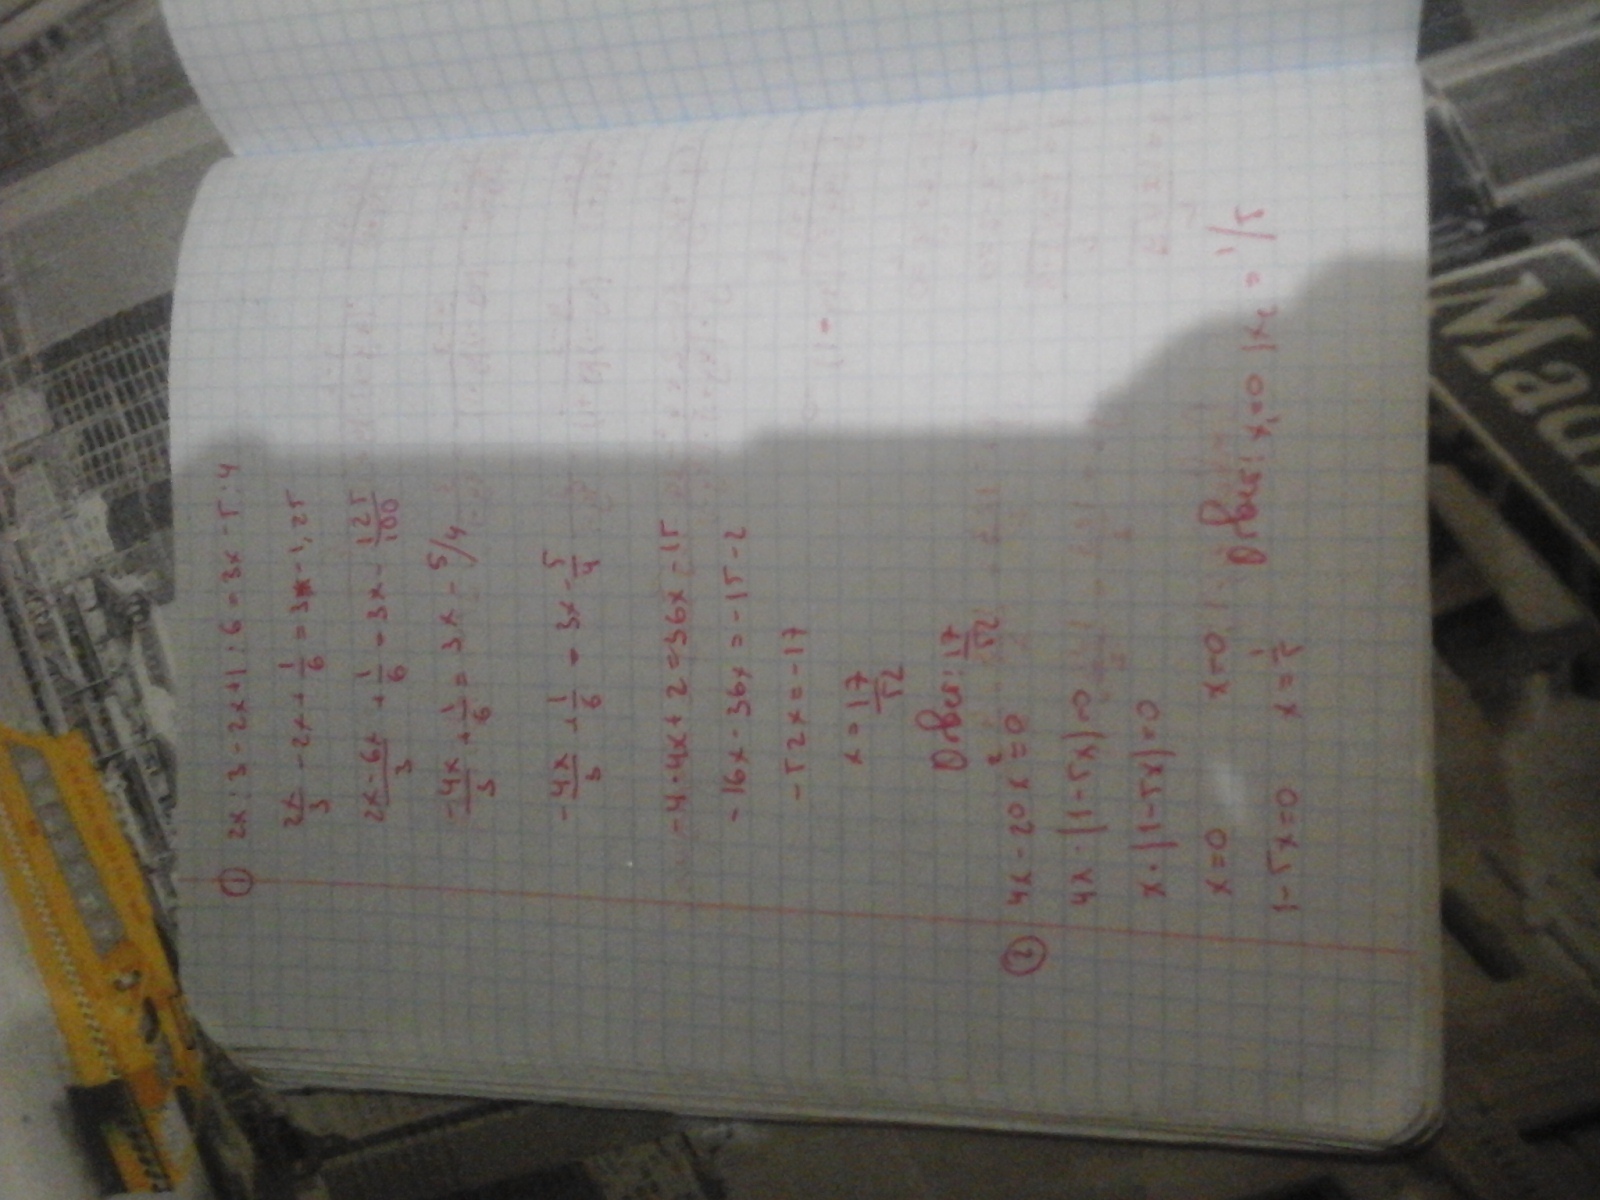 ① 2x : 3 - 2x + 1 : 6 = 3x - 5 : 4
2x/3 - 2x + 1/6 = 3x - 1,25
2x - 6x/3 + 1/6 = 3x - 125/100
-4x/3 + 1/6 = 3x - 5/4
-4x/3 + 1/6 = 3x - 5/4
-4·4x + 2 = 36x - 15
-16x - 36x = -15 - 2
-52x = -17
x = 17/52
Ответ: 17/52
② 4x - 20x² = 0
4x · (1 - 5x) = 0
x · (1 - 5x) = 0
x = 0 x = 0
1 - 5x = 0 x = 1/5
Ответ: x₁ = 0, x₂ = 1/5
Mad